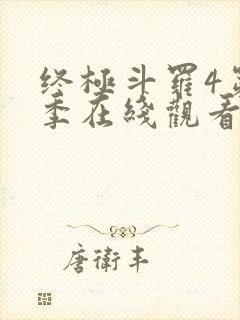 终極斗羅4第
季在綫觀看
唐衛丰